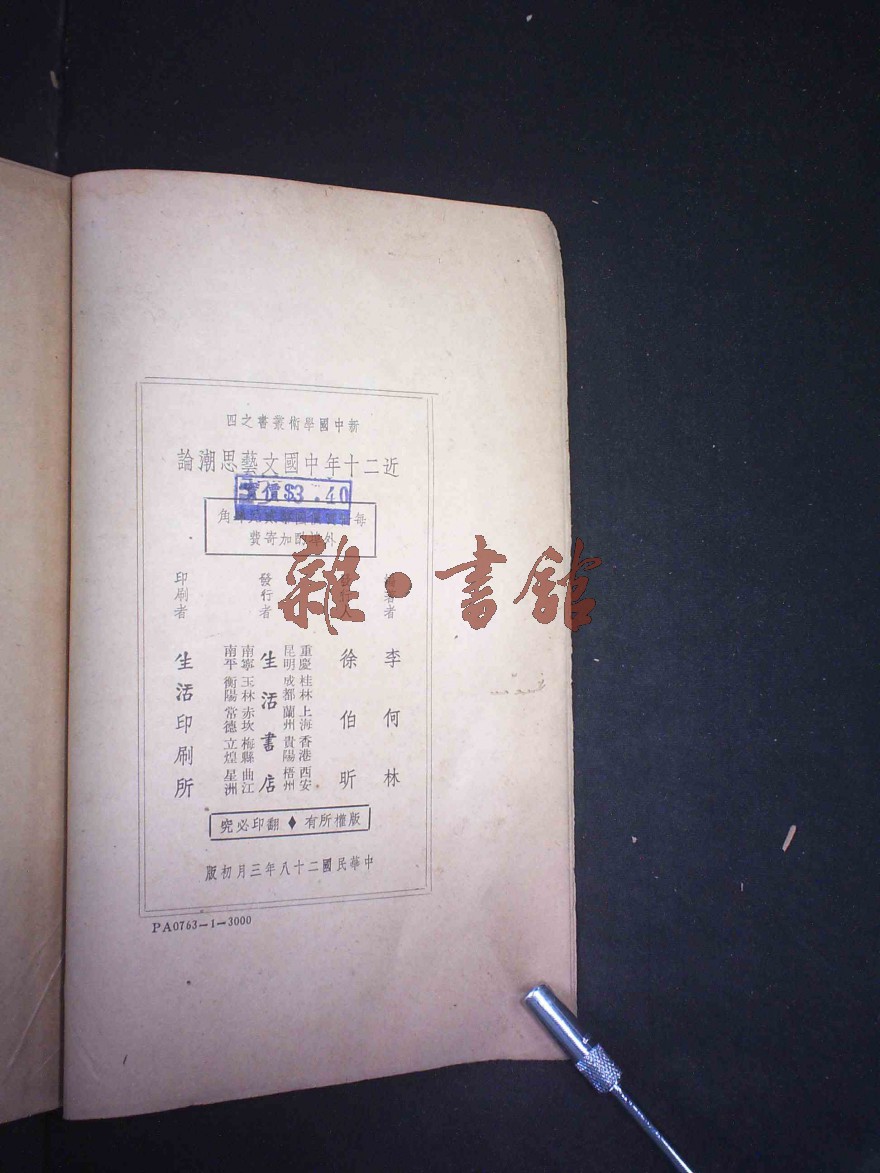 新中國學術叢書之四
近二十年中國文藝思潮論
實價$3.40
每
角
外埠酌加寄費
編著者
李何林
發行人
徐伯昕
發行者
生活書店
重慶 桂林 上海 香港 西安
昆明 成都 蘭州 貴陽 梧州
南寧 玉林 赤坎 梅縣 曲江
南平 衡陽 常德 立煌 星洲
印刷者
生活印刷所
版權所有♦翻印必究
中華民國二十八年三月初版
PA0763-1-3000
雜·書館